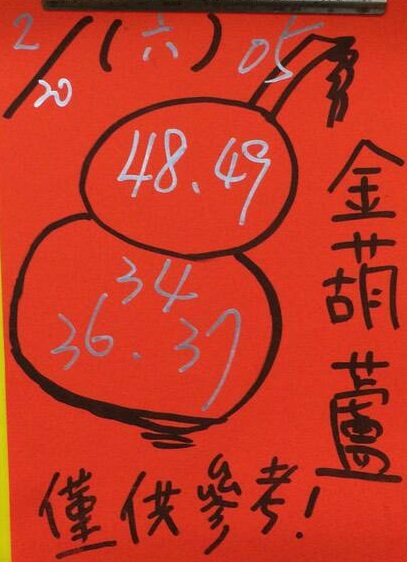 2/20(六) 05
48.49
34
36.37
金葫蘆
僅供參考!